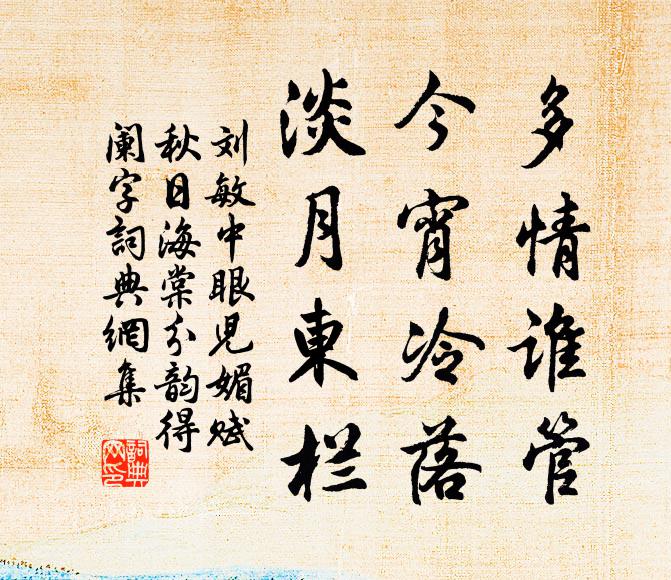 多情谁管
今宵冷落
淡月東栏
刘敏中眼児媚赋
秋日海棠分韵得
阑字詞典網集
詞典
网印